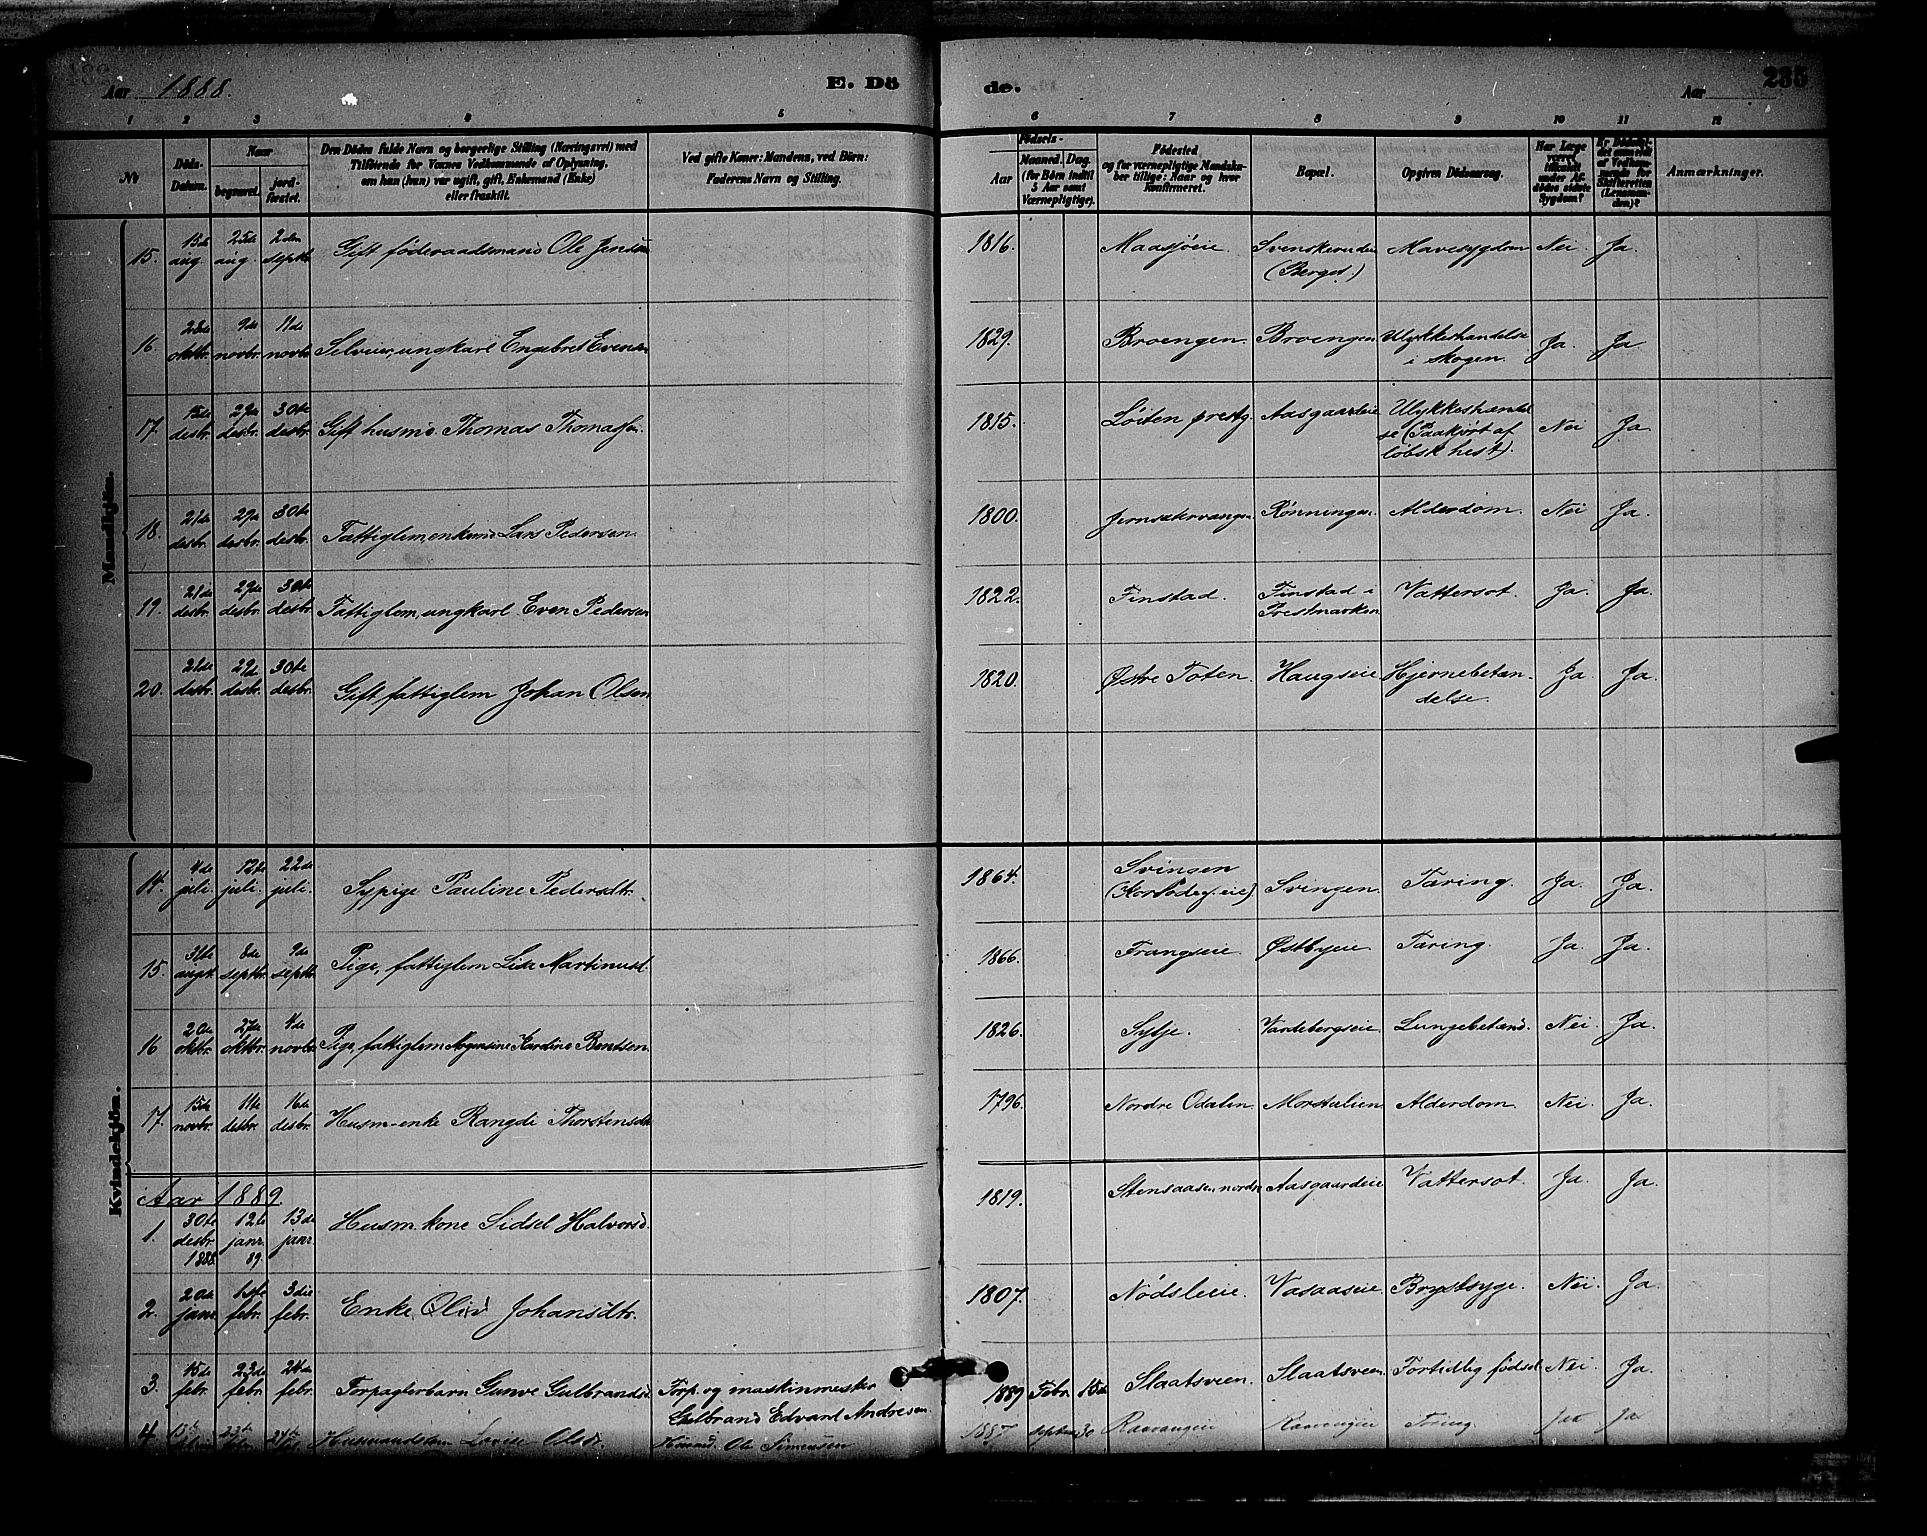 Aar 1888. E. Dö de. Aar 235
1 2 3 4 5 6 7 8 9 10 11 12
No
Döds-Datum.
Naar
begravet.
jord-fæstet.
Den Dödes fulde Navn og borgerlige Stilling (Næringsvei) med
Tilföiende for Voxnes Vedkommende af Oplysning,
om han (hun) var ugift, gift, Enkemand (Enke)
eller fraskilt.
Ved gifte Koner: Mandens, ved Börn:
Faderens Navn og Stilling.
Födsels-
Aar
Maaned. Dag.
(for Börn indtil
5 Aar samt
Værnepligtige).
Födested
og for værnepligtige Mandska-
ber tillige: Naar og hvor
konfirmeret.
Bopæl.
Opgiven Dödsaarsag.
Har Læge
været
tilkaldt
under Af-
dödes sidste
Sygdom?
Er Dödsfal-
det anmeldt
af Vedkom-
mende for
Skifteretten
(Lensman-
den)?
Anmærkninger.
Mandkjön.
15. 15de aug. 25de aug. 2den septbr Gift föderaadsmand Ole Jensen 1816. Maasjøeie. Svenskerudeie (Berger) Mavesygdom Nei Ja.
16. 28de oktbr. 9de novbr. 11de novbr. Selveier, ungkarl Engebret Evensen 1829. Broengen. Broengen Ulykkeshændelse i skogen. Ja. Ja.
17. 15de desbr. 29de desbr. 30te desbr. Gift husmd. Thomas Thomassen. 1815. Löiten prestg. Aasgaardeie Ulykkeshændel se (Paakjørt af löbsk hest). Nei Ja.
18. 21de desbr. 29de desbr. 30te desbr. Fattiglem, enkemd Lars Pedersen. 1800. Rønningen. Alderdom. Nei Ja.
19. 21de desbr. 29de desbr. 30te desbr. Fattiglem, ungkarl Even Pedersen 1822. Finstad. Finstad i Prestmarken Vattersot. Ja. Ja.
20. 21de desbr. 29de desbr. 30te desbr. Gift fattiglem Johan Olsen 1820. Østre Toten. Haugseie Hjernebetæn- delse. Ja Ja
Kvindekjön.
14. 4de juli. 12te juli. 22de juli. Sypige Pauline Pedersdtr. 1864. Svingen (Korsødegseie) Svingen. Tæring. Ja. Ja.
15. 31te augst. 8de septbr. 9de septbr. Pige, fattiglem Lise Martinusd. 1866. Frangseie. Østbyeie. Tæring. Ja. Ja.
16 20de oktbr. 27de oktbr. 4de novbr. Pige, fattiglem Karoline Bentsen. 1826. Sylje. Vardebergseie. Lungebetænd. Nei. Ja.
17. 15de novbr. 11te desbr. 16de desbr. Husm-enke Rangdi Thorstensdtr 1796. Nordre Odalen. Morstulien. Alderdom. Nei. Ja.
Aar 1889.
1. 30te desbr. 1888. 12te janr. 89. 13de janr. Husm.kone Sidsel Halvorsd. 1819. Stensaasen nordre Aasgaardeie Vattersot. Ja. Ja.
2. 20de janr. 1ste febr. 3die febr. Enke Oliv Johansdtr. 1807. Nødsleie. Vasaaseie. Brystsyge. Nei. Ja.
3. 15de febr. 23de febr. 24de febr. Forpagterbarn Gunve Gulbrandsd. Forp. og maskinmester Gulbrand Edvart Andresen. 1889 Febr. 15de Slaatsveen. Slaatsveen Fortidlig fødsel Nei. Ja.
4. 15de 23de 24de Lovise Olsdtr. Ole Simensen 1887 septbr 30 Raavangeie Raavangeie Tæring. Ja Ja